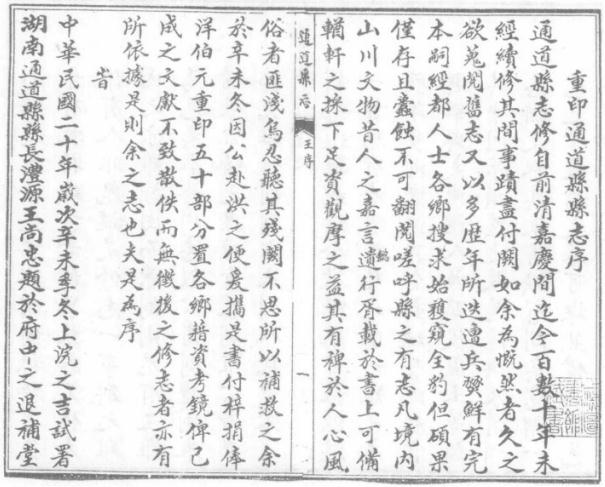 重印通道縣縣志序
通道縣志修自前清嘉慶間迄今百數十年未
經續修其間事蹟盡付闕如余為慨然者久之
欲蒐閱舊志又以多歷年所迭遭兵燹鮮有完
本嗣經都人士各鄉搜求始獲窺全豹但碩果
僅存且蠹蝕不可翻閱嗟呼縣之有志凡境內
山川文物昔人之嘉言遺行胥載於書上可備
輶軒之採下足資觀摩之益其有裨於人心風
通道縣志
王序
一
俗者匪淺烏忍聽其殘闕不思所以補救之余
於辛未冬因公赴洪之便爰攜是書付梓捐俸
洋伯元重印五十部分置各鄉藉資考鏡俾已
成之文獻不致散佚而無徵後之修志者亦有
所依據是則余之志也夫是為序
旹
中華民國二十年歲次辛未季冬上浣之吉試署
湖南通道縣縣長澧源王尚忠題於府中之退補堂